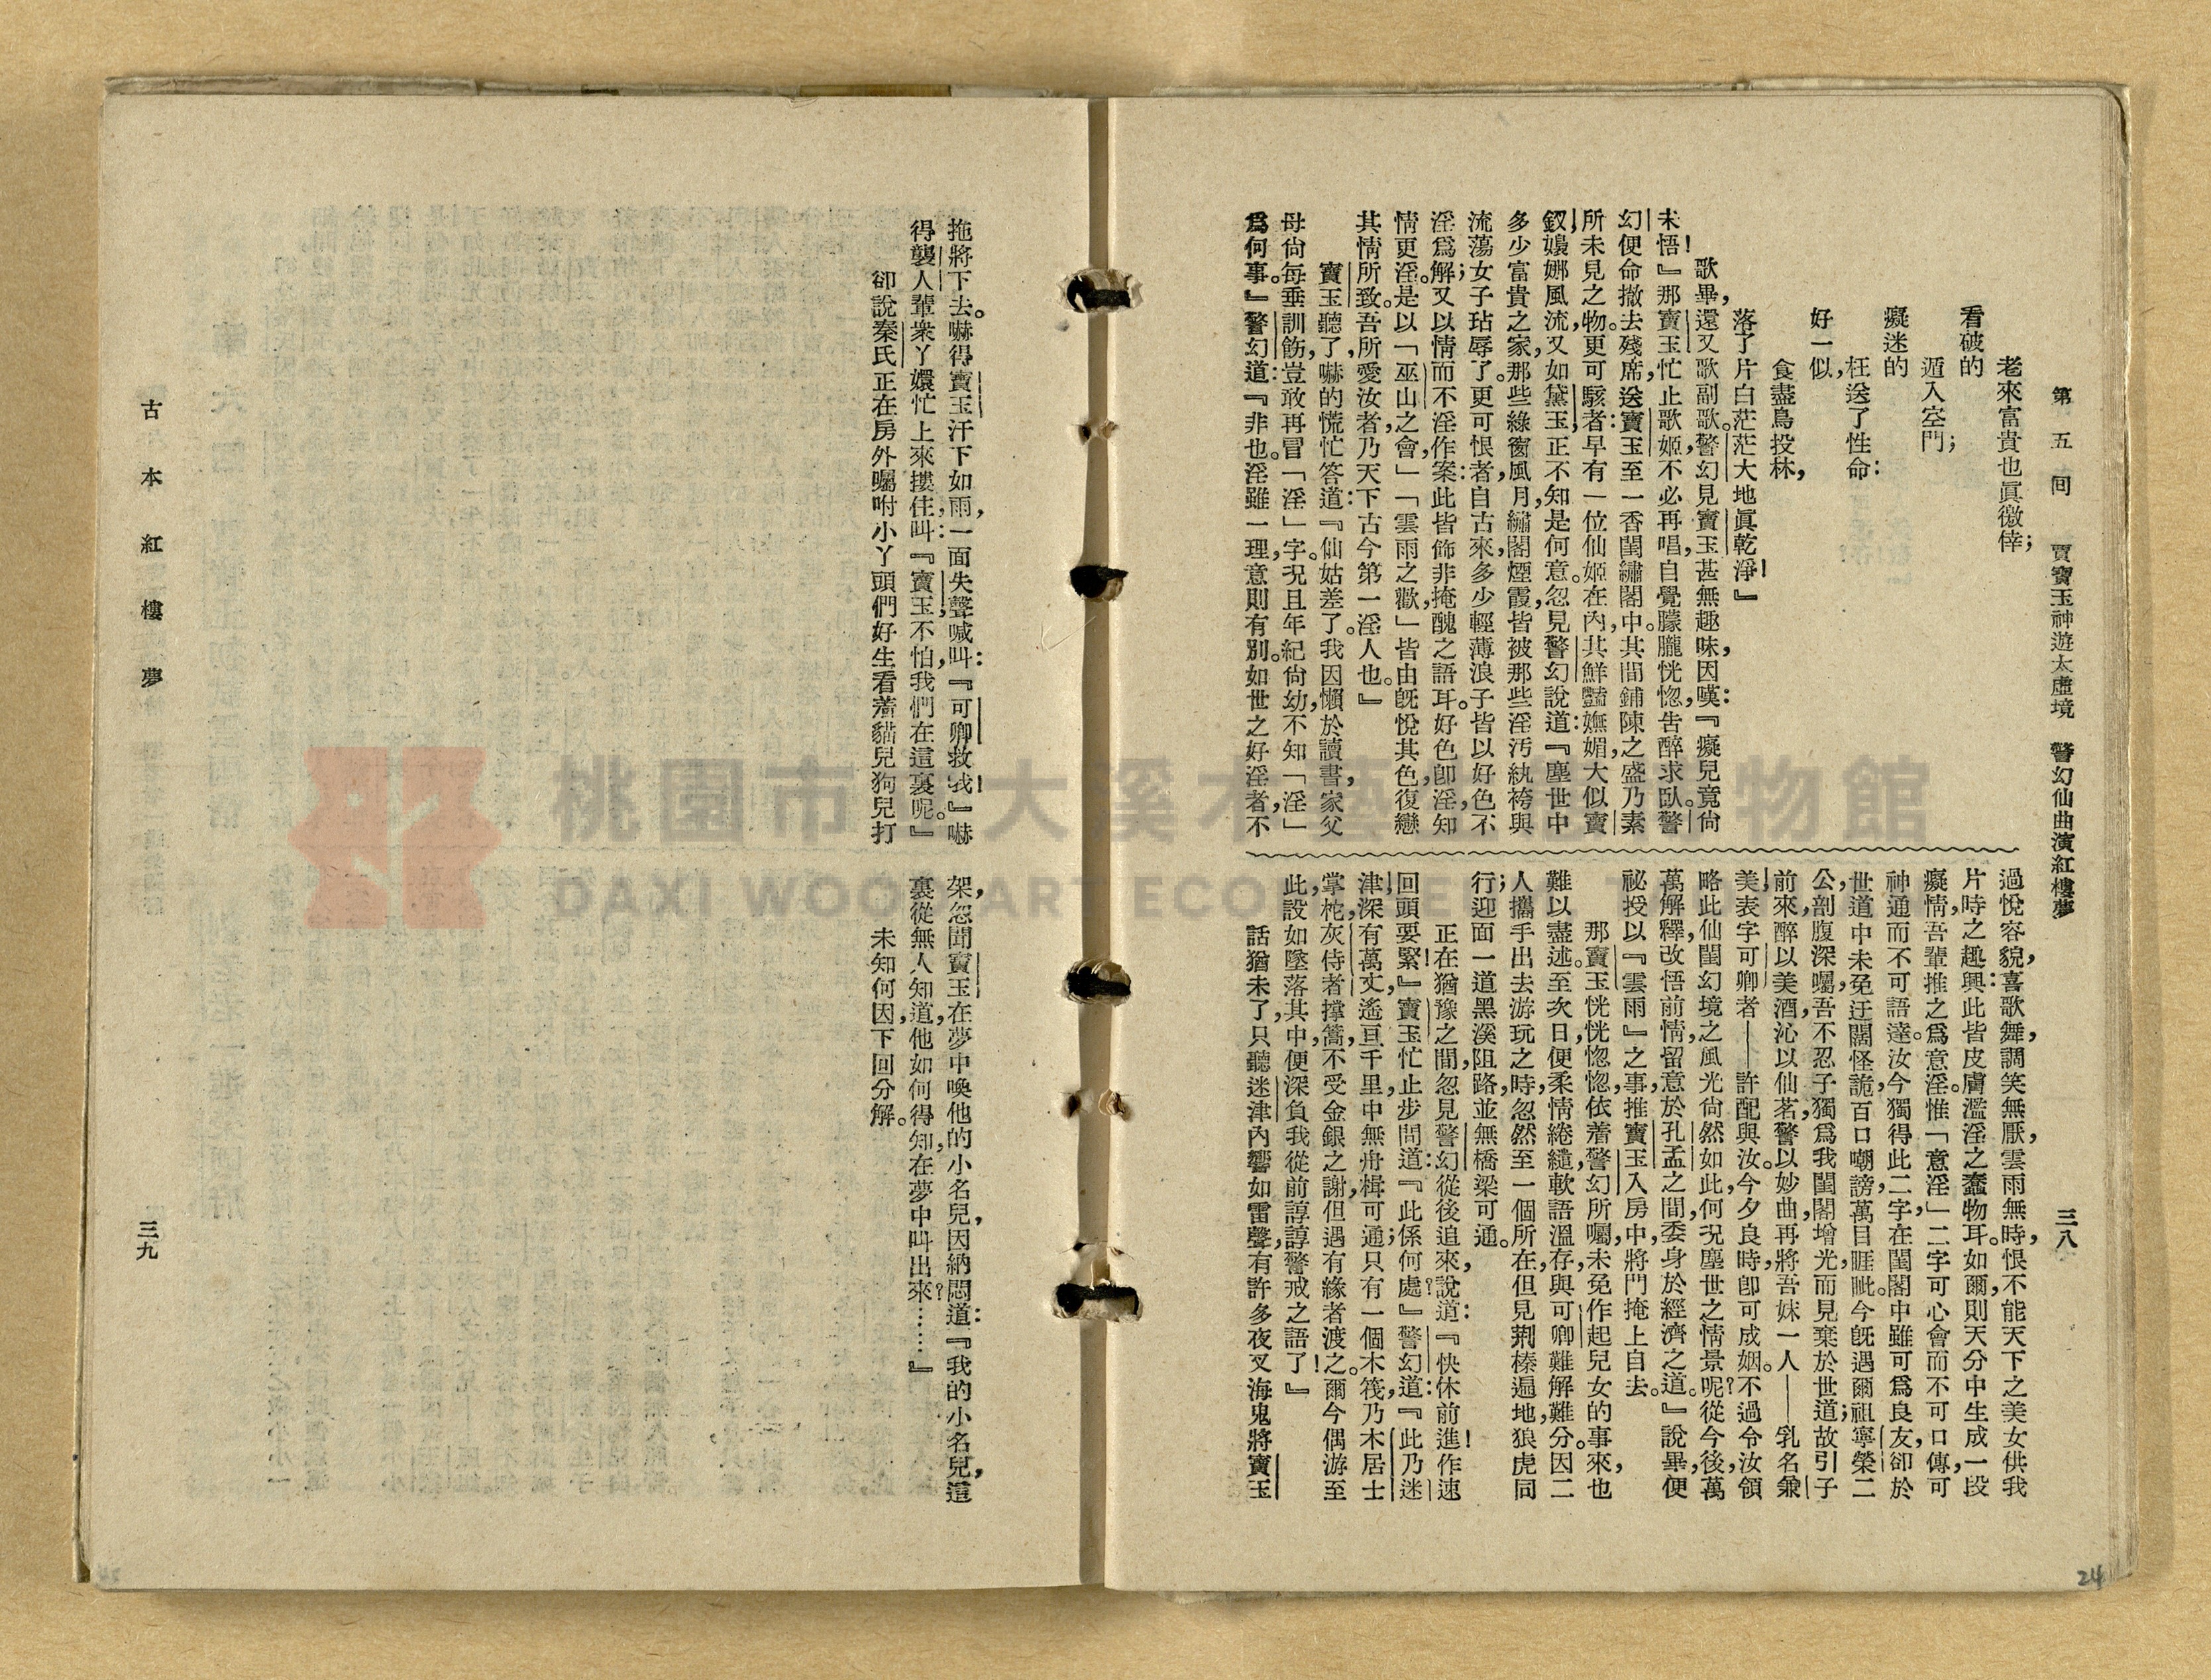 第五回　賈寶玉神遊太虛境　警幻仙曲演紅樓夢　三八
老來富貴也眞徼倖；
看破的
遁入空門；
癡迷的
枉送了性命：
好一似，
食盡鳥投林，
落了片白茫茫大地眞乾淨！』
歌畢，還又歌副歌。警幻見寶玉甚無趣味，因嘆：『癡兒竟尙
未悟！』那寶玉忙止歌姬，不必再唱，自覺朦朧恍惚，告醉求臥。警
幻便命撤去殘席，送寶玉至一香閨繡閣中。其間鋪陳之盛，乃素
所未見之物。更可駭者：早有一位仙姬在內，其鮮豔嫵媚，大似寶
釵，嬝娜風流，又如黛玉，正不知是何意。忽見警幻說道：『塵世中
多少富貴之家，那些綠窗風月，繡閣煙霞，皆被那些淫汚紈袴與
流蕩女子玷辱了。更可恨者，自古來，多少輕薄浪子，皆以好色不
淫爲解；又以情而不淫作案：此皆飾非掩醜之語耳。好色卽淫，知
情更淫。是以「巫山之會，」「雲雨之歡，」皆由旣悅其色，復戀
其情所致。吾所愛汝者，乃天下古今第一淫人也。』
寶玉聽了，嚇的慌忙答道：『仙姑差了。我因懶於讀書，家父
母尙每垂訓飭，豈敢再冒「淫」字。況且年紀尙幼，不知「淫」
爲何事。』警幻道：『非也。淫雖一理，意則有別。如世之好淫者，不
過悅容貌，喜歌舞，調笑無厭，雲雨無時，恨不能天下之美女供我
片時之趣興：此皆皮膚濫淫之蠢物耳。如爾，則天分中生成一段
癡情，吾輩推之爲意淫。惟「意淫」二字，可心會而不可口傳，可
神通而不可語達。汝今獨得此二字，在閨閣中，雖可爲良友，卻於
世道中未免迂闊怪詭，百口嘲謗，萬目睚眦。今旣遇爾祖寧榮二
公，剖腹深囑，吾不忍子獨爲我閨閣增光，而見棄於世道；故引子
前來，醉以美酒，沁以仙茗，警以妙曲，再將吾妹一人——乳名兼
美，表字可卿者——許配與汝。今夕良時，卽可成姻。不過令汝領
略此仙閨幻境之風光尙然如此，何況塵世之情景呢？從今後，萬
萬解釋，改悟前情，留意於孔孟之間，委身於經濟之道。』說畢，便
祕授以『雲雨』之事，推寶玉入房中，將門掩上自去。
那寶玉恍恍惚惚，依着警幻所囑，未免作起兒女的事來，也
難以盡述。至次日，便柔情綣繾，軟語溫存，與可卿難解難分。因二
人攜手出去游玩之時，忽然至一個所在，但見荆榛遍地，狼虎同
行；迎面一道黑溪阻路，並無橋梁可通。
正在猶豫之間，忽見警幻從後追來，說道：『快休前進！作速
回頭要緊！』寶玉忙止步問道：『此係何處？』警幻道：『此乃迷
津，深有萬丈，遙亘千里，中無舟楫可通；只有一個木筏，乃木居士
掌柁，灰侍者撐篙，不受金銀之謝，但遇有緣者渡之。爾今偶游至
此，設如墜落其中，便深負我從前諄諄警戒之語了！』
話猶未了，只聽迷津內響如雷聲，有許多夜叉海鬼將寶玉
拖將下去。嚇得寶玉汗下如雨，一面失聲喊叫：『可卿救我！』嚇
得襲人輩衆丫嬛忙上來摟住，叫：『寶玉，不怕，我們在這裏呢。』
卻說秦氏正在房外囑咐小丫頭們好生看着貓兒狗兒打
架，忽聞寶玉在夢中喚他的小名兒，因納悶道：『我的小名兒，這
裏從無人知道，他如何得知，在夢中叫出來？……』
未知何因，下回分解。
古本紅樓夢　三九
24
桃園市　大溪木　物館
DAXI WOOD ART ECOM